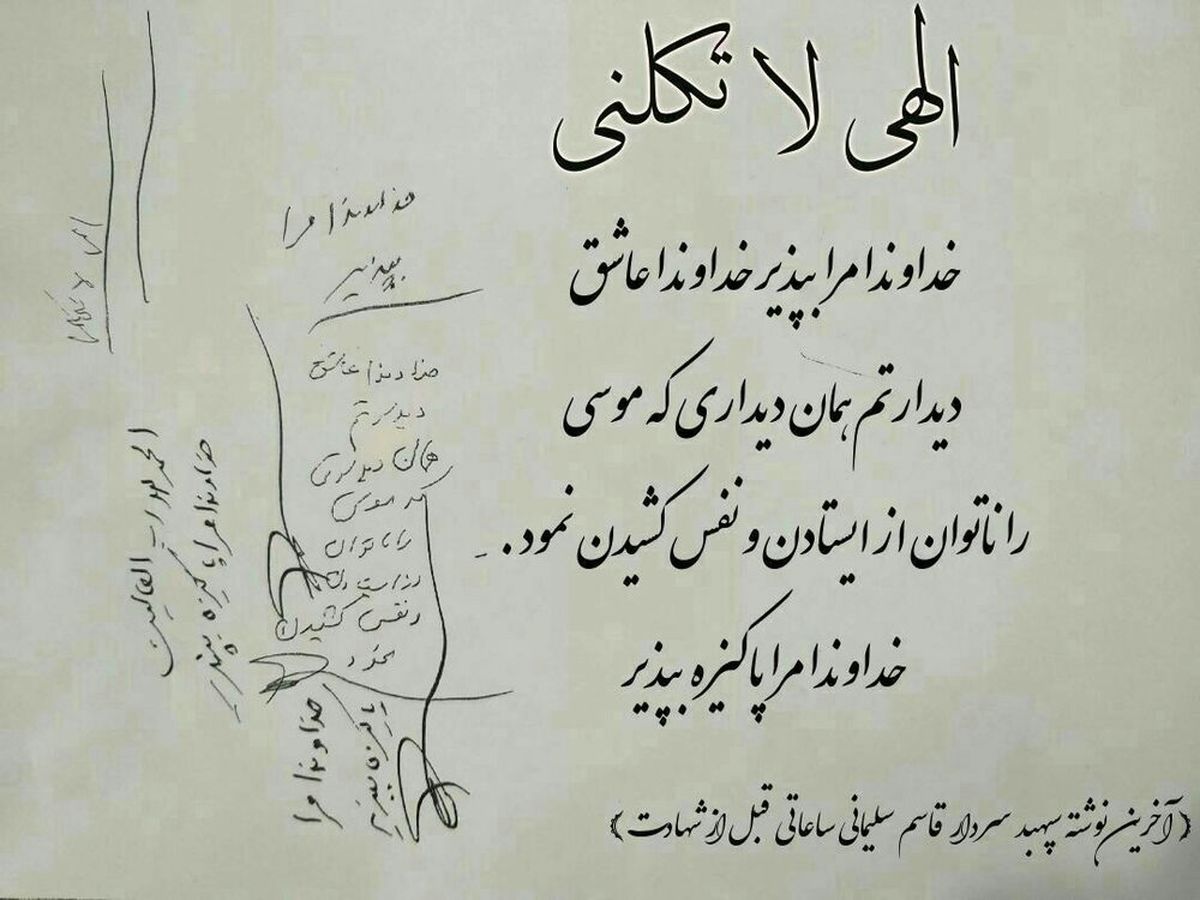 الهی لا تکلنی
خداوندا مرا بپذیر خداوندا عاشق
دیدارتم همان دیداری که موسی
را ناتوان از ایستادن و نفس کشیدن نمود. -
خداوندا مرا پاکیزه بپذیر
﴿آخرین نوشته سپهبد سردار قاسم سلیمانی ساعاتی قبل از شهادت﴾
خداوندا مرا
بپذیر
خداوندا عاشق
دیدارتم
همان دیداری
که موسی
را ناتوان
از ایستادن
و نفس کشیدن
نمود
خداوندا مرا
پاکیزه بپذیر
الحمدلله رب العالمین
خداوندا مرا پاکیزه بپذیر
الهی لا تکلنی